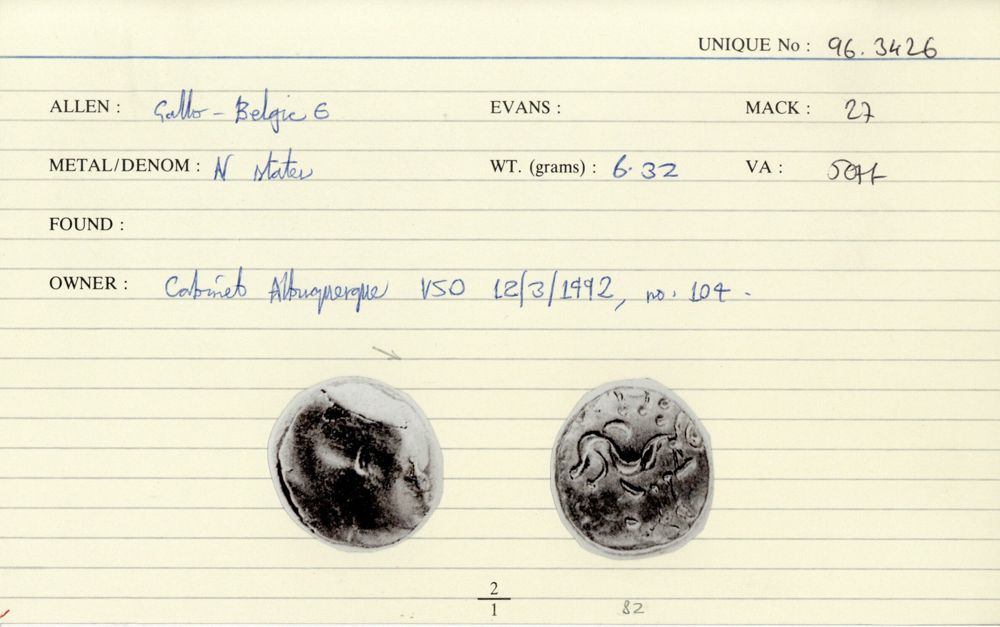 UNIQUE No : 96.3426
ALLEN : Gallo-Belgic E EVANS : MACK : 27
METAL/DENOM : N stater WT. (grams) : 6.32 VA :
FOUND :
OWNER : Cabinet Albuquerque VSO 12/3/1992, no. 104.
2
1 82